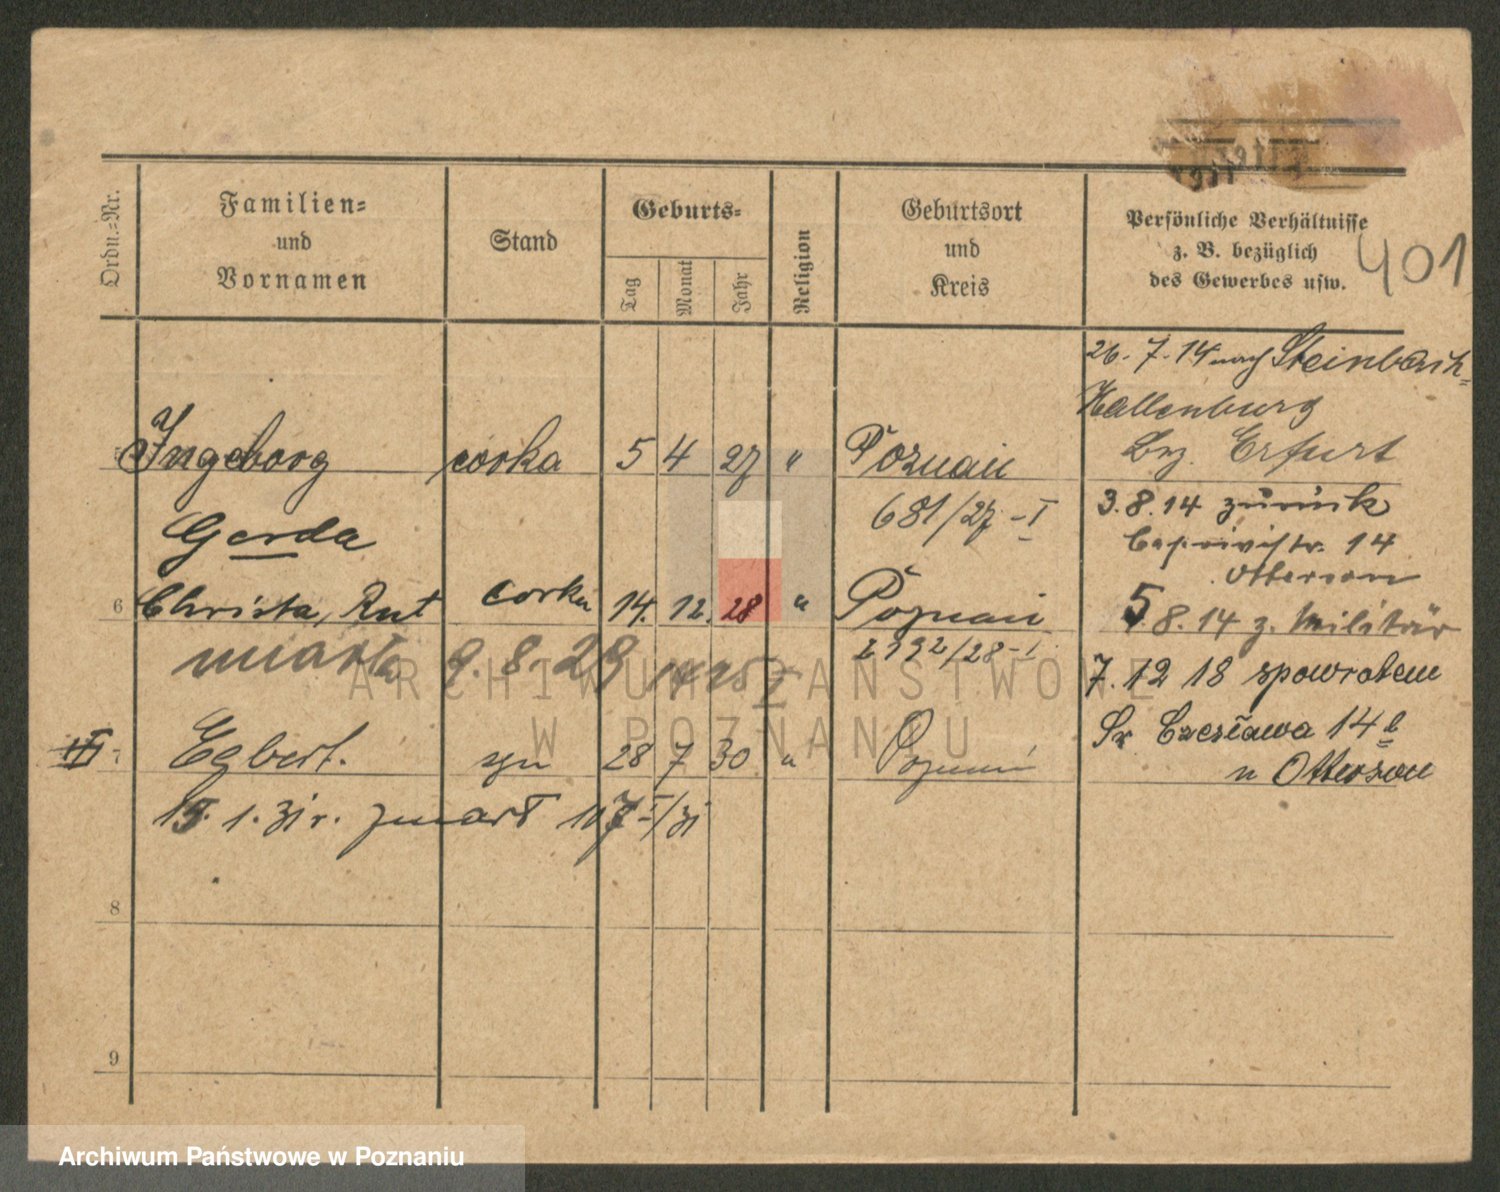 Ordn.=Nr.
Familien=
und
Vornamen
Stand
Geburts=
Tag
Monat
Jahr
Religion
Geburtsort
und
Kreis
Persönliche Verhältnisse
z. B. bezüglich
des Gewerbes usw.
401
26. 7. 14 nach Steinbach=
Hallenburg
Bez. Erfurt
Ingeborg córka 5 4 27 " Poznań
681/27-I
3.8.14 zurück
14
Gerda
Otterson
6 Christa, Rut córka 14. 12. 28 " Poznań
5.8.14 z. Militär
zmarła 9.8.29
2392/28-I
7. 12 18 spowrotem
Sr Czesława 14 b
u Otterson
Egbert. syn 28 7 30 " Poznań
15. 1. 31 r. zmarł 107 I/31
8
9
ARCHIWUM PAŃSTWOWE
W POZNANIU
Archiwum Państwowe w Poznaniu